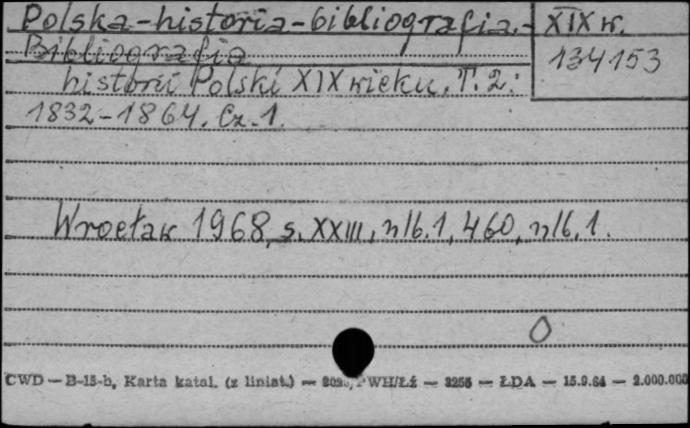 Polska-historia-bibliografia.- XIX w.
Bibliografia
134153
historii Polski XIX wieku. T. 2:
1832-1864. Cz. 1.
Wrocław 1968, s. XXIII, nlb. 1, 460, nlb. 1.
0
CWD — B-15-b, Karta katal. (z liniat.) — PWH/Łź — 3255 — ŁDA — 15.9.64 — 2.000.000